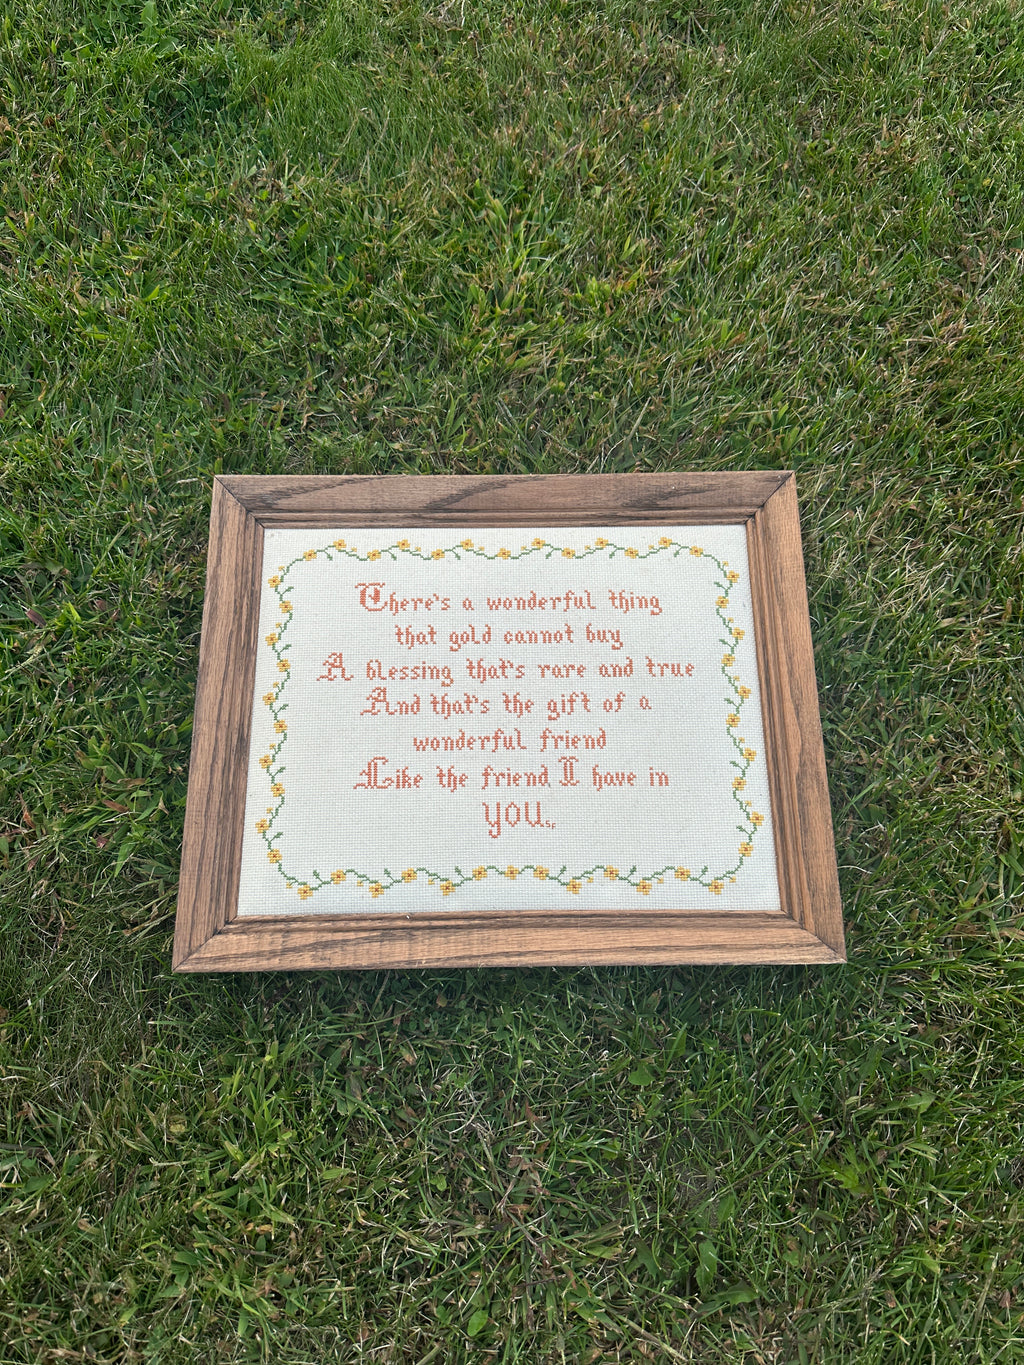 There's a wonderful thing
that gold cannot buy
A blessing that's rare and true
And that's the gift of a
wonderful friend
Like the friend I have in
YOU.